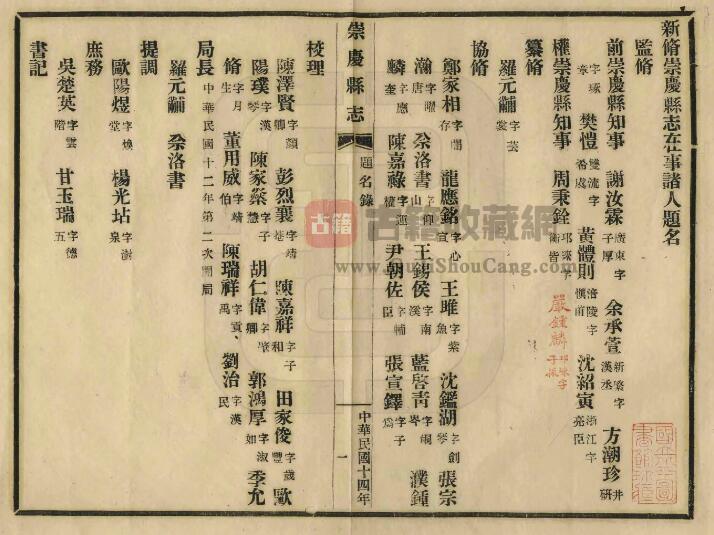 新脩崇慶縣志在事諸人題名
監脩
前崇慶縣知事 謝汝霖 廣東字子厚 余承萱 新繁字漢丞 方潮珍 井研
字琢章 樊愷 雙流字 黃體則 涪陵字慎前 沈紹寅 浙江字亮臣
權崇慶縣知事 周秉銓 邛崍字衡皆 嚴鍾麟 邛崍字子振
纂脩
羅元黼 字芸裳
協脩
鄭家相 字存 龍應銘 字心宣 王雎 字紫魚 沈鑑湖 字劍琴 張宗
瀚 字曙唐 余洛書 字仰山 王錫侯 字南溪 藍啓靑 字峒岑 濮鍾
麟 字應奎 陳嘉祿 尹朝佐 字輔臣 張宣鐸 字子爲
崇慶縣志
題名錄
一
中華民國十四年
校理
陳澤賢 字顯卿 彭烈襄 字靖 陳嘉祥 字子和 田家俊 字歲豐 歐
陽璞 字漢琴 陳家蔡 字子慧 胡仁偉 字肇卿 郭鴻厚 字淑如 季允
脩 字月生 董用威 字靖伯 陳瑞祥 字貢禹 劉治 字漢民
局長 中華民國十二年第二次開局
羅元黼 余洛書
提調
歐陽煜 字煥堂 楊光坫 字澍泉
庶務
吳楚英 字雲階 甘玉瑞 字德五
書記
古籍 古籍收藏網
www.GujiShouCang.com